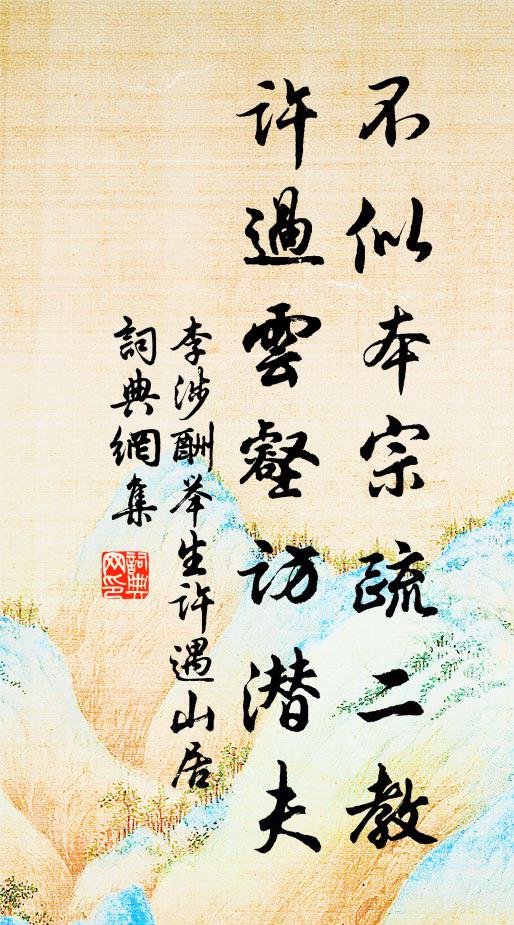 不似本宗疏二教
許過雲壑訪潛夫
李涉酬举生许遇山居
詞典網集
詞典網印